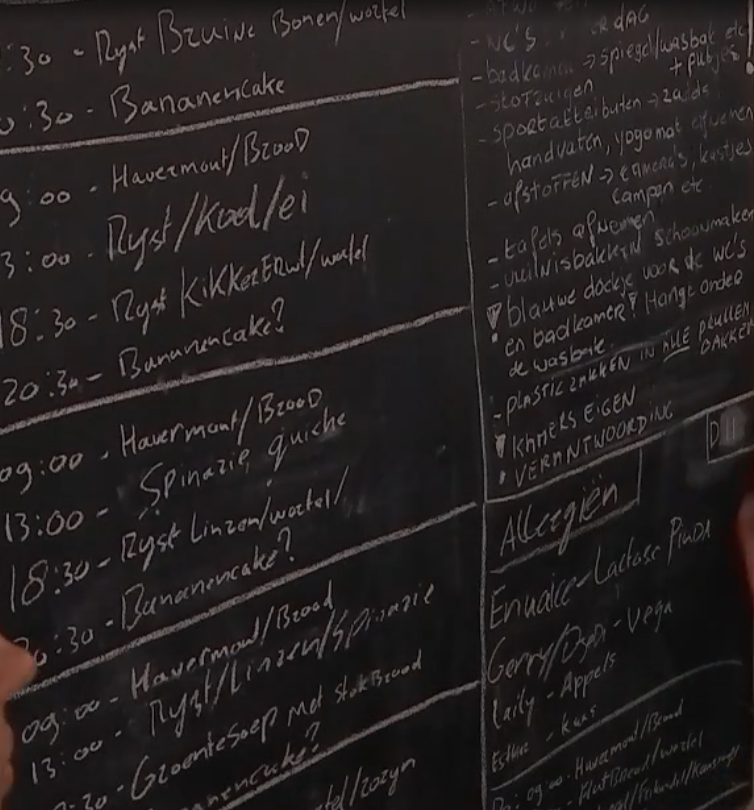 :30 - Ryst Bruine Bonen/wortel
0:30 - Bananencake
9:00 - Havermout/Brood
3:00 - Ryst/Kool/ei
18:30 - Ryst KiKKerERwt/wortel
20:30 - Bananencake?
09:00 - Havermout/Brood
13:00 - Spinazie quiche
18:30 - Ryst Linzen/wortel/
20:30 - Bananencake?
09:00 - Havermout/Brood
13:00 - Ryst/Linzen/Spinazie
:30 - Groentesoep Met StokBrood
nencake?
tel/rozyn
- WC'S DAG
- badkamer → spiegel/wasbak etc
+ putjes
- stofzuigen
- sportattributen →
handvaten, yogamat afnemen
- afstoffen → camera's, kastjes
campen etc
- tafels afnemen
- vuilnisbakken schoonmaken
blauwe doekje voor de wc's
en badkamer! Hangt onder
de wasbak.
- PLASTIC ZAKKEN IN ALLE PRULLEN
BAKKEN
KAMERS EIGEN
VERANTWOORDING
Allergiën
Lactose PINDA
Gerry/ - Vega
Laily - Appels
Esther - Kaas
09:00 - Havermout/Brood
FlatBread/wortel